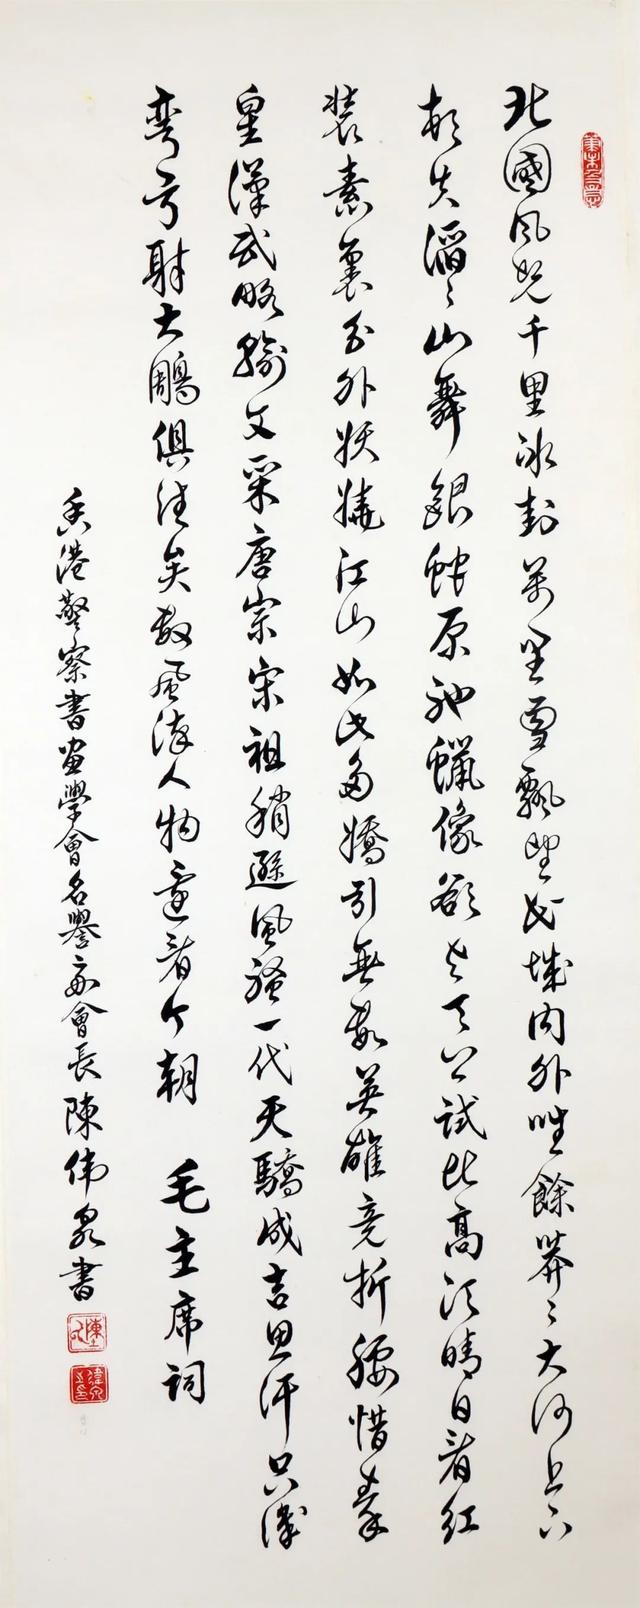 北國風光千里冰封萬里雪飄望長城内外唯餘莽〻大河上下
頓失滔〻山舞銀蛇原馳蠟像欲与天公試比高須晴日看紅
裝素裹分外妖嬈江山如此多嬌引無數英雄竞折腰惜秦
皇漢武略輸文采唐宗宋祖稍遜風騷一代天驕成吉思汗只識
彎弓射大鵰俱往矣数風流人物還看今朝 毛主席詞
香港警察書画學會名譽會長陳伟泉書